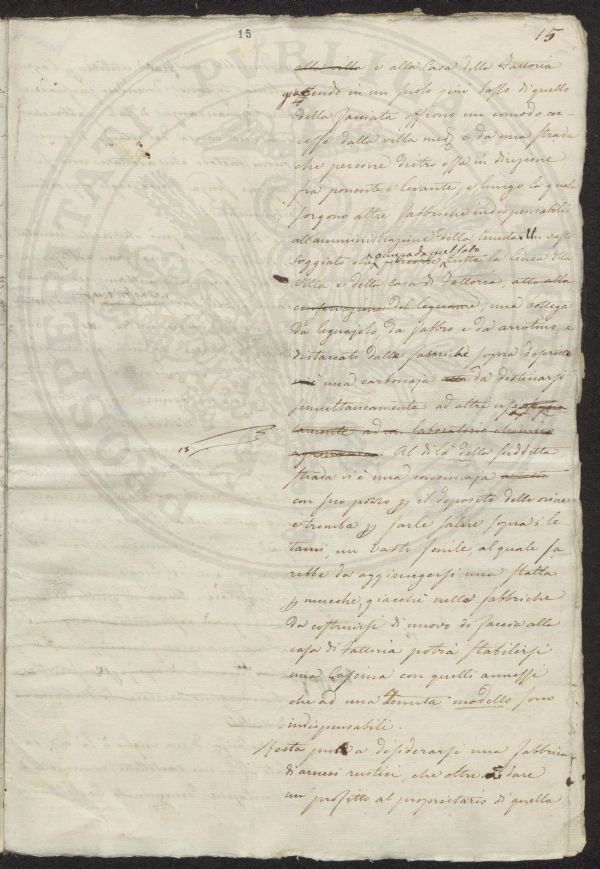 15
15
alla villa e alla Casa della Fattoria
in un suolo più basso di quello
della facciata offrono un comodo ac-
cesso dalla villa med.ª e da una strada
che percorre dietro essa in direzione
fra ponente e levante, e lungo la quale
sorgono altre fabbriche indispensabili
all'amministrazione della tenuta. Un
loggiato che occupa da quel lato tutta la linea della
Villa e della casa di Fattoria, atto alla
conservazione del legname, una bottega
da legnajolo, da fabbro e da arrotino, e
distaccato dalle fabbriche sopra descritte
una carbonaja da destinarsi
simultaneamente ad altri usi
ad un laboratorio chimico
agronomico. Al di là della suddetta
strada vi è una concimaja
con suo pozzo p il deposito delle orine
e tromba p farle salire sopra i le
tami, un vasto fenile, al quale sa
rebbe da aggiungersi una stalla
p mucche, giacchè nelle fabbriche
da costruirsi di nuovo di faccia alla
casa di Fattoria potrà stabilirsi
una Cascina con quelli annessi
che ad una Tenuta modello sono
indispensabili.
Resta pure a desiderarsi una fabbrica
di arnesi rustici, che oltre a dare
un profitto al proprietario di quella
15